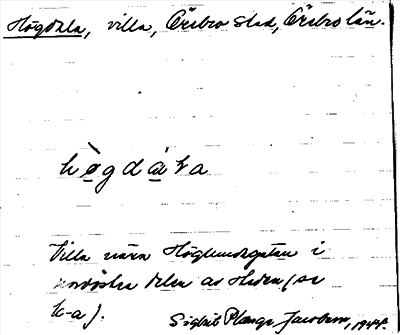 Högdala, villa, Örebro stad, Örebro län.
högdàla
Villa nära Höglundagatan i
nordöstra delen av staden (se
k-a).
Sigbrit Plænge Jacobson, 1944.